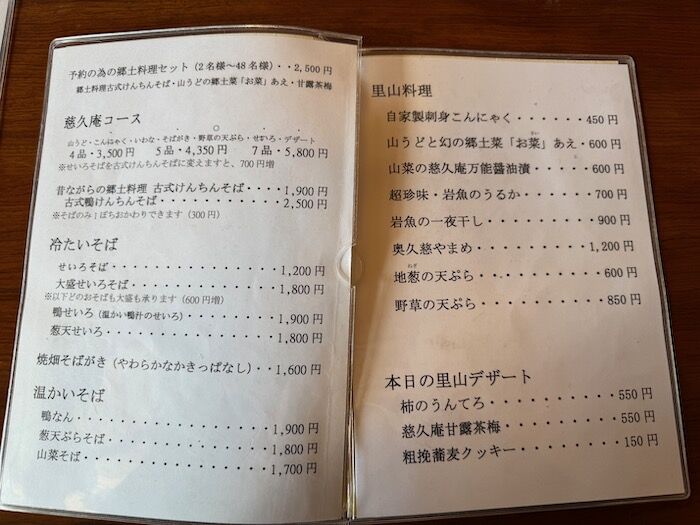 予約の為の郷土料理セット（2名様〜48名様）・・2,500円
郷土料理古式けんちんそば・山うどの郷土菜「お菜」あえ・甘露茶梅
慈久庵コース
山うど・こんにゃく・いわな・そばがき・野草の天ぷら・せいろ・デザート
4品・3,500円　5品・4,350円　7品・5,800円
※せいろそばを古式けんちんそばに変えますと、700円増
昔ながらの郷土料理 古式けんちんそば・・・1,900円
古式鴨けんちんそば・・・・・・・・・・・2,500円
※そばのみ1ぼちおかわりできます（300円）
冷たいそば
せいろそば・・・・・・・・・・・・・・・1,200円
大盛せいろそば・・・・・・・・・・・・・1,800円
※以下どのおそばも大盛も承ります（600円増）
鴨せいろ（温かい鴨汁のせいろ）・・・・・1,900円
葱天せいろ・・・・・・・・・・・・・・・1,800円
焼畑そばがき（やわらかなかきっぱなし）・・1,600円
温かいそば
鴨なん・・・・・・・・・・・・・・・・・1,900円
葱天ぷらそば・・・・・・・・・・・・・・1,800円
山菜そば・・・・・・・・・・・・・・・・1,700円
里山料理
自家製刺身こんにゃく・・・・・・450円
山うどと幻の郷土菜「お菜」あえ・600円
山菜の慈久庵万能醤油漬・・・・・600円
超珍味・岩魚のうるか・・・・・・700円
岩魚の一夜干し・・・・・・・・・900円
奥久慈やまめ・・・・・・・・・1,200円
地葱の天ぷら・・・・・・・・・・600円
野草の天ぷら・・・・・・・・・・850円
本日の里山デザート
柿のうんてろ・・・・・・・・・・550円
慈久庵甘露茶梅・・・・・・・・・550円
粗挽蕎麦クッキー・・・・・・・・150円